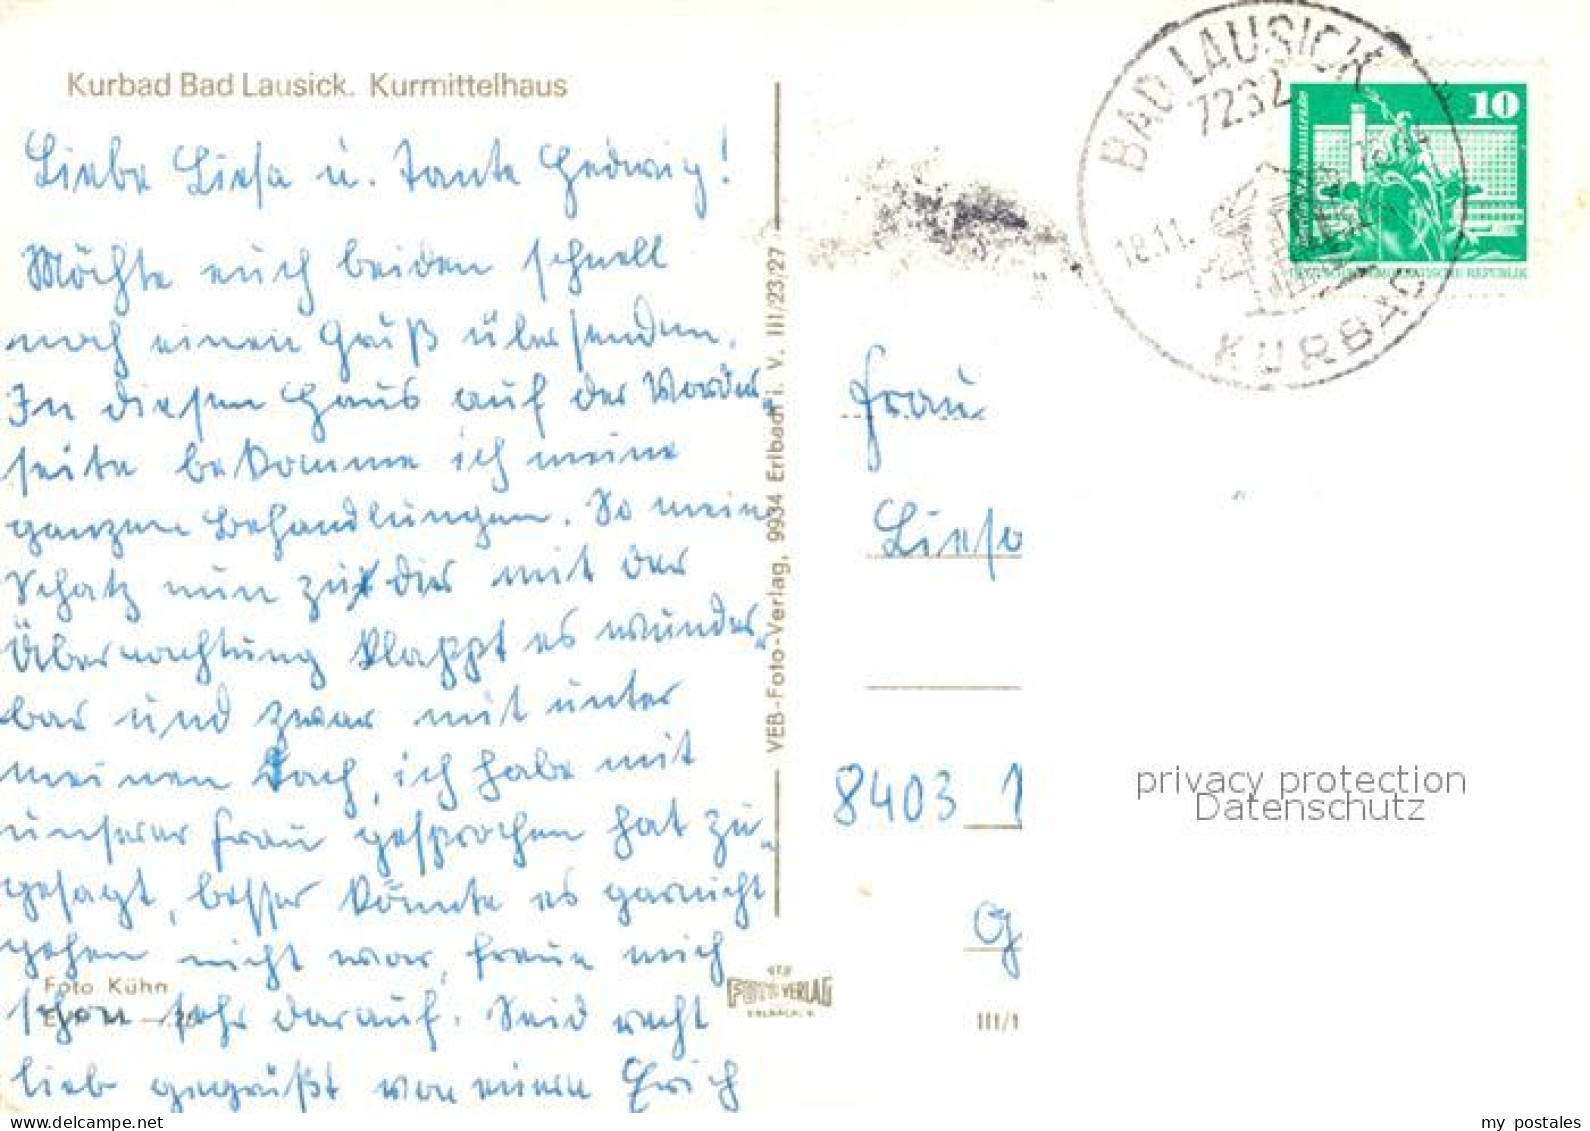 Kurbad Bad Lausick. Kurmittelhaus
Liebe Liesa u. Tante Hedwig!
Möchte euch beiden schnell
noch einen Gruß übersenden.
In diesem Haus auf der Vorder-
seite bekomme ich meine
ganzen Behandlungen. So mein
Schatz nun zu dir mit der
Übernachtung klappt es wunder-
bar und zwar mit unter
meinen Dach, ich habe mit
unserer Frau gesprochen hat zu-
gesagt, besser könnte es garnicht
gehen nicht war, freue mich
schon sehr darauf. Seid recht
lieb gegrüßt von eurem Erich
Foto Kühn
VEB-Foto-Verlag, 9934 Erlbach i. V. III/23/27
FOTO VERLAG
ERLBACH. V.
BAD LAUSICK
7232
18.11.
KURBAD
10
DEUTSCHE DEMOKRATISCHE REPUBLIK
Frau
Liesa
8403 1
G
III/1
privacy protection
Datenschutz
my postales